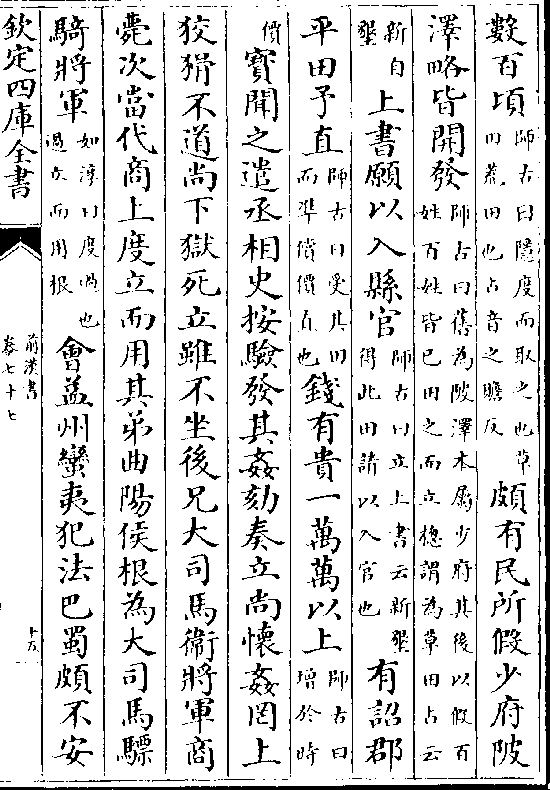 數百頃師古曰隱度而取之也草田荒田也占音之贍反頗有民所假少府陂
澤略皆開發師古曰舊為陂澤本屬少府其後以假百姓百姓皆已田之而立總謂為草田占云
新自墾上書願以入縣官師古曰立上書云新墾得此田請以入官也有詔郡
平田予直師古曰受其田而準償價直也錢有貴一萬萬以上師古曰增於時
價寶聞之遣丞相史按驗發其姦劾奏立尚懷姦罔上
狡猾不道尚下獄死立雖不坐後兄大司馬衞將軍商
薨次當代商上度立而用其弟曲陽侯根為大司馬驃
騎將軍如淳曰度過也過立而用根會益州蠻夷犯法巴蜀頗不安
欽定四庫全書
前漢書
卷七十七
十五